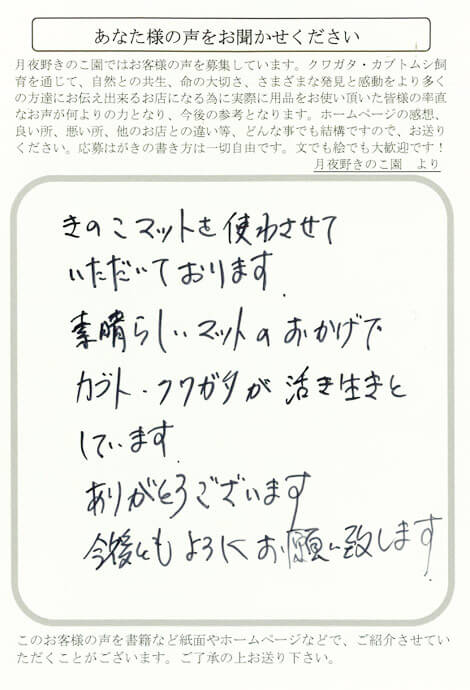 あなた様の声をお聞かせください
月夜野きのこ園ではお客様の声を募集しています。クワガタ・カブトムシ飼
育を通じて、自然との共生、命の大切さ、さまざまな発見と感動をより多く
の方達にお伝え出来るお店になる為に実際に用品をお使い頂いた皆様の率直
なお声が何よりの力となり、今後の参考となります。ホームページの感想、
良い所、悪い所、他のお店との違い等、どんな事でも結構ですので、お送り
ください。応募はがきの書き方は一切自由です。文でも絵でも大歓迎です！
月夜野きのこ園　より
きのこマットを使わさせて
いただいております.
素晴らしいマットのおかげで
カブト・クワガタが活き生きと
しています.
ありがとうございます
今後ともよろしくお願い致します.
このお客様の声を書籍など紙面やホームページなどで、ご紹介させてい
ただくことがございます。ご了承の上お送り下さい。